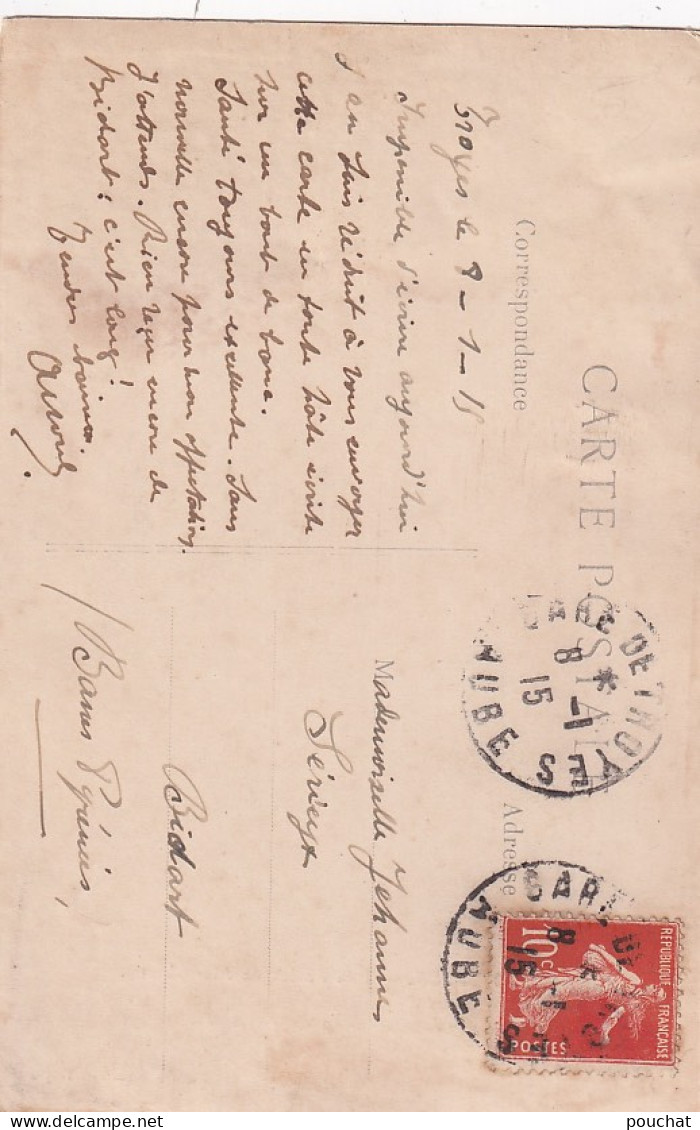 CARTE POSTALE
Correspondance
Adresse
Troyes le 8-1-15
Impossible d'écrire aujourd'hui
J'en suis réduit à vous envoyer
cette carte en toute hâte écrite
sur un bout de banc.
Santé toujours excellente. Sans
nouvelle encore pour mon affectation
J'attends. Rien reçu encore de
Bidart : c'est long!
Tendres baisers.
Mademoiselle Jehanne
Sérieyx
Bidart
/ Basses Pyrénées
GARE DE TROYES
* 8 -1
15
AUBE
GARE DE TROYES
8 -1
15
AUBE
REPUBLIQUE FRANÇAISE
10c
POSTES
pouchat